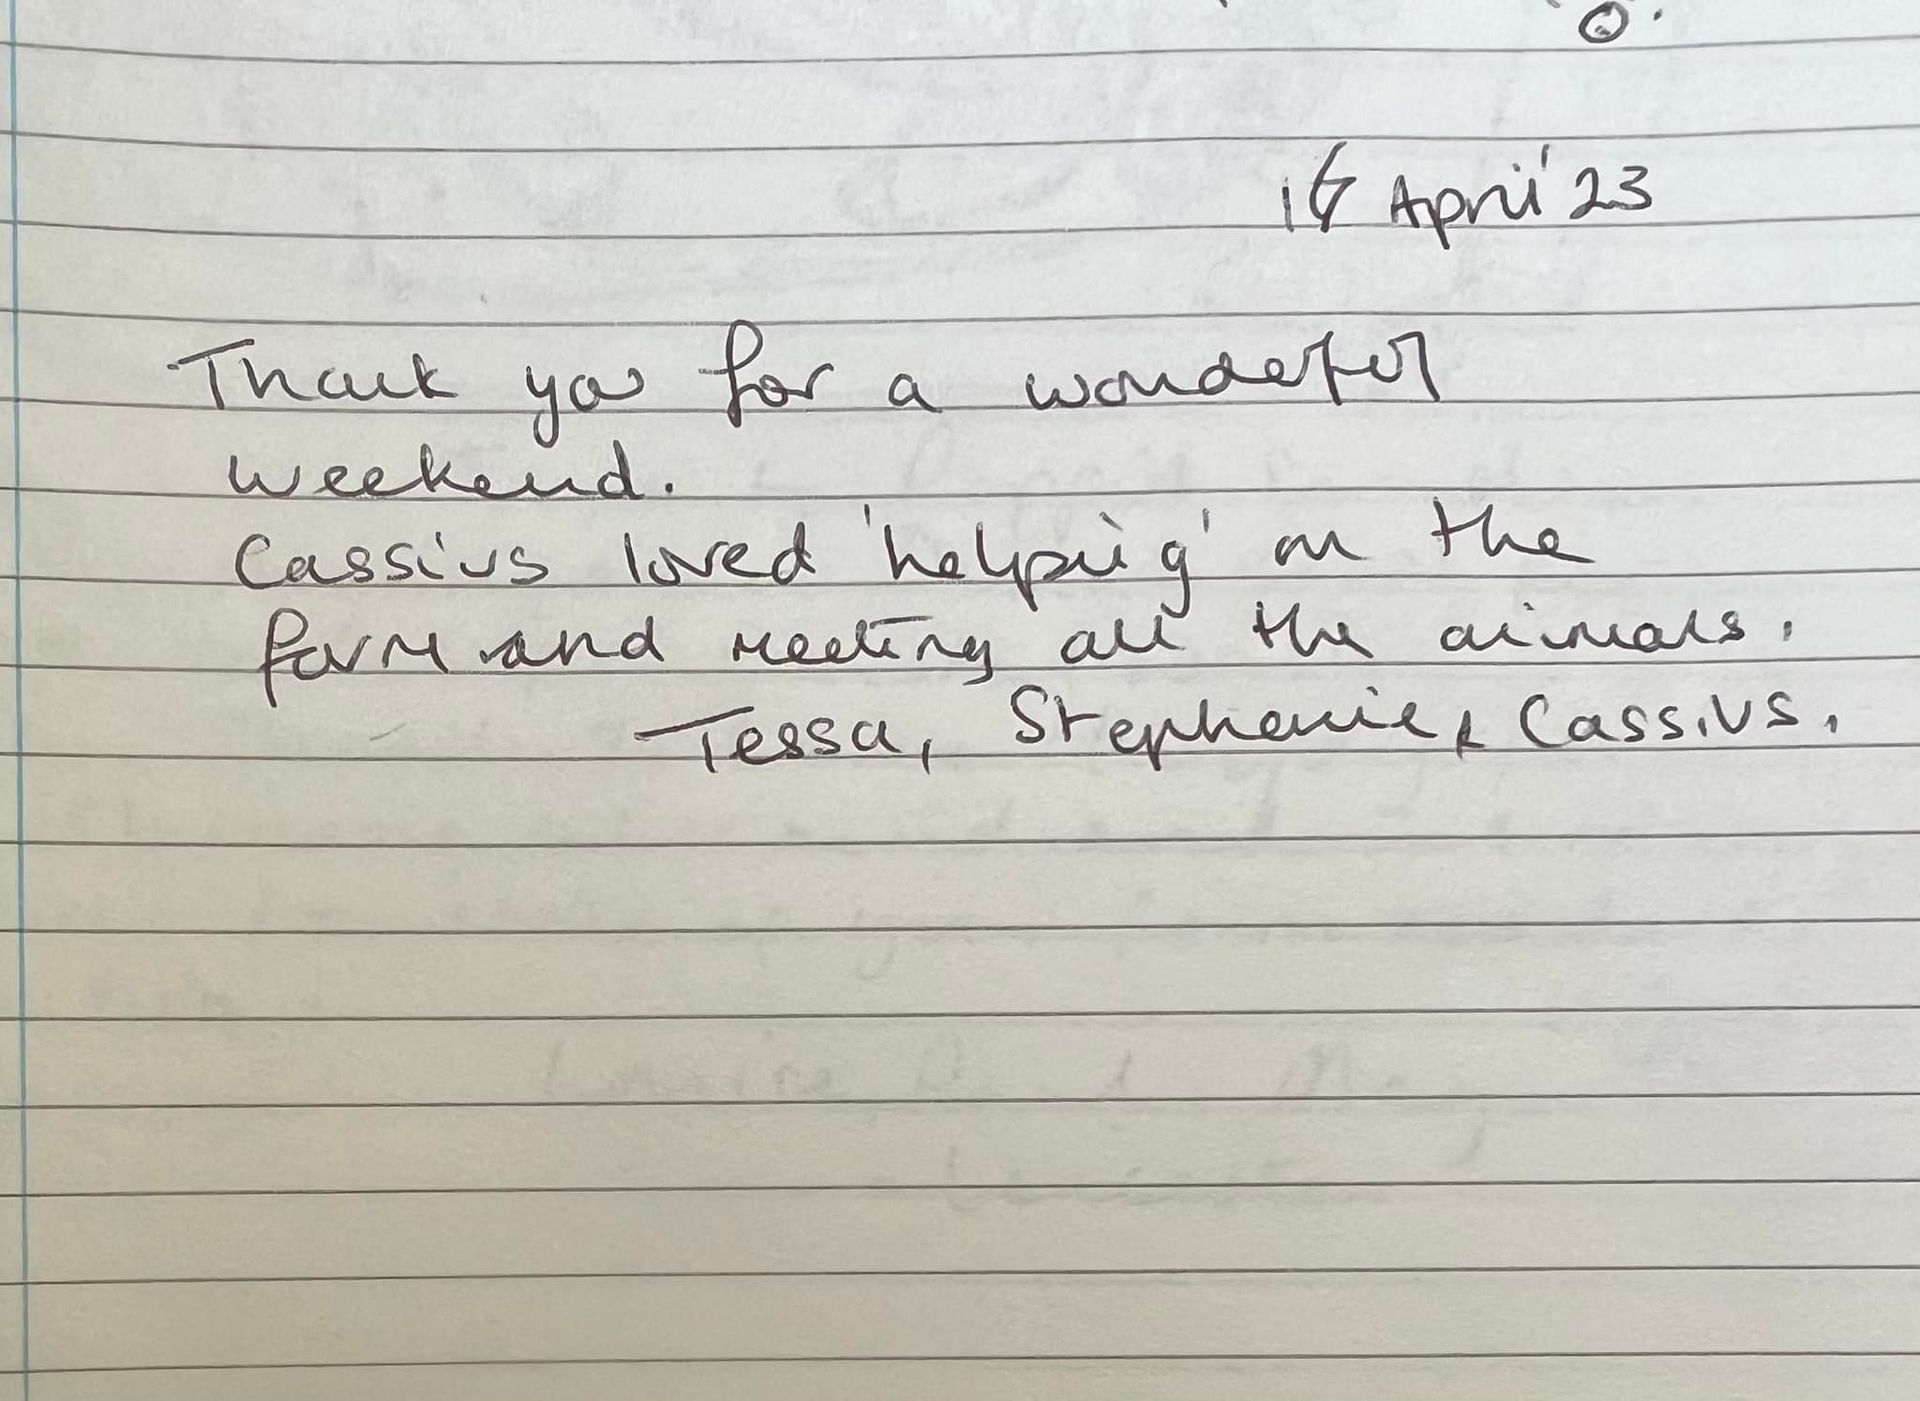 16 April '23
Thank you for a wonderful
weekend.
Cassius loved 'helping' on the
farm and meeting all the animals.
Tessa, Stephanie & Cassius.